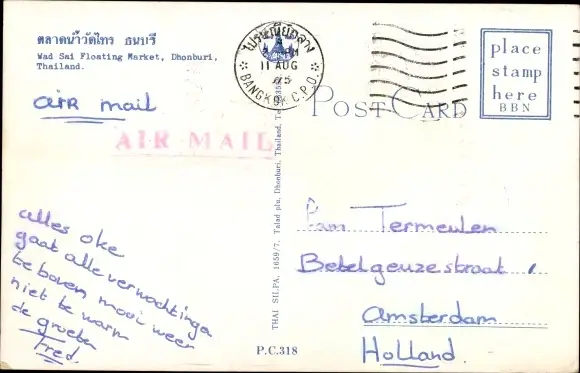 ตลาดน้ำวัดไทร ธนบุรี
Wad Sai Floating Market, Dhonburi,
Thailand.
air mail
AIR MAIL
alles oke
gaat alle verwachtinga
te boven mooi weer
niet te warm
de groeten
Fred.
ไปรษณีย์กลาง
11 AUG
BANGKOK G.P.O.
THAI SILPA, 1659/7, Talad plu, Dhonburi, Thailand,
P.C.318
POST CARD
place
stamp
here
BBN
Pam Termeulen
Betelgeuzestraat
Amsterdam
Holland.